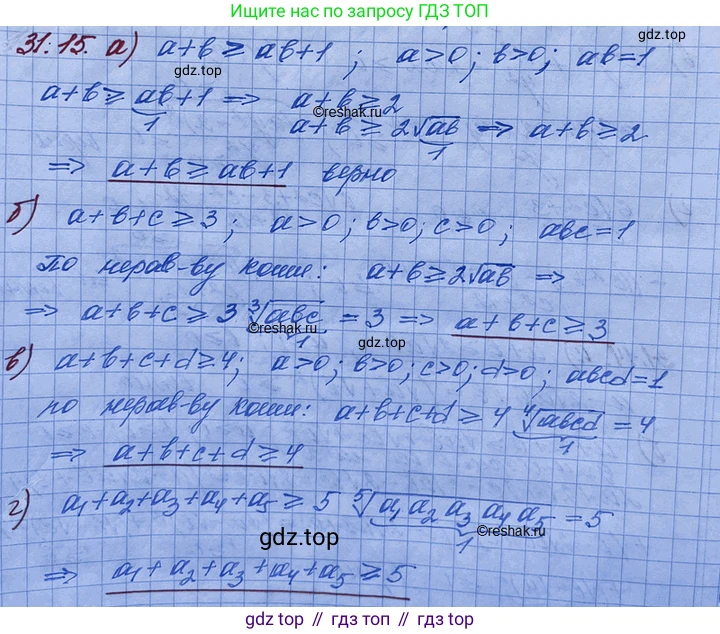 Ищите нас по запросу ГДЗ ТОП
31.15. а) a+b ≥ ab+1 ; a>0; b>0; ab=1
gdz.top
a+b ≥ ab+1 ⇒ a+b ≥ 2
1
©reshak.ru
a+b ≥ 2√ab ⇒ a+b ≥ 2
1
⇒ a+b ≥ ab+1 верно
б) a+b+c ≥ 3; a>0; b>0; c>0; abc=1
По нерав-ву Коши: a+b ≥ 2√ab ⇒
⇒ a+b+c ≥ 3 ∛abc = 3 ⇒ a+b+c ≥ 3
1
©reshak.ru
gdz.top
в) a+b+c+d ≥ 4; a>0; b>0; c>0; d>0; abcd=1
по нерав-ву Коши: a+b+c+d ≥ 4 ∜abcd = 4
1
⇒ a+b+c+d ≥ 4
г) a₁+a₂+a₃+a₄+a₅ ≥ 5 ⁵√a₁ a₂ a₃ a₄ a₅ = 5
1
©reshak.ru
gdz.top
⇒ a₁+a₂+a₃+a₄+a₅ ≥ 5
gdz.top // gdz.top // gdz.top